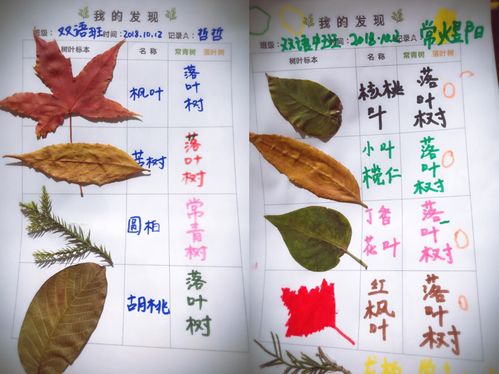 我的发现
班级：双语班 时间：2018.10.12 记录人：哲哲
树叶标本 名称 常青树 落叶树
枫叶
落
叶
树
苦树
落
叶
树
圆柏
常
青
树
胡桃
落
叶
树
我的发现
班级： 双语中班 2018.10.12 常煜阳
树叶标本 名称 常青树 落叶树
核桃
叶
落
叶
树
小叶
榄仁
落
叶
树
丁香
花叶
落
叶
树
红
枫
叶
落
叶
树